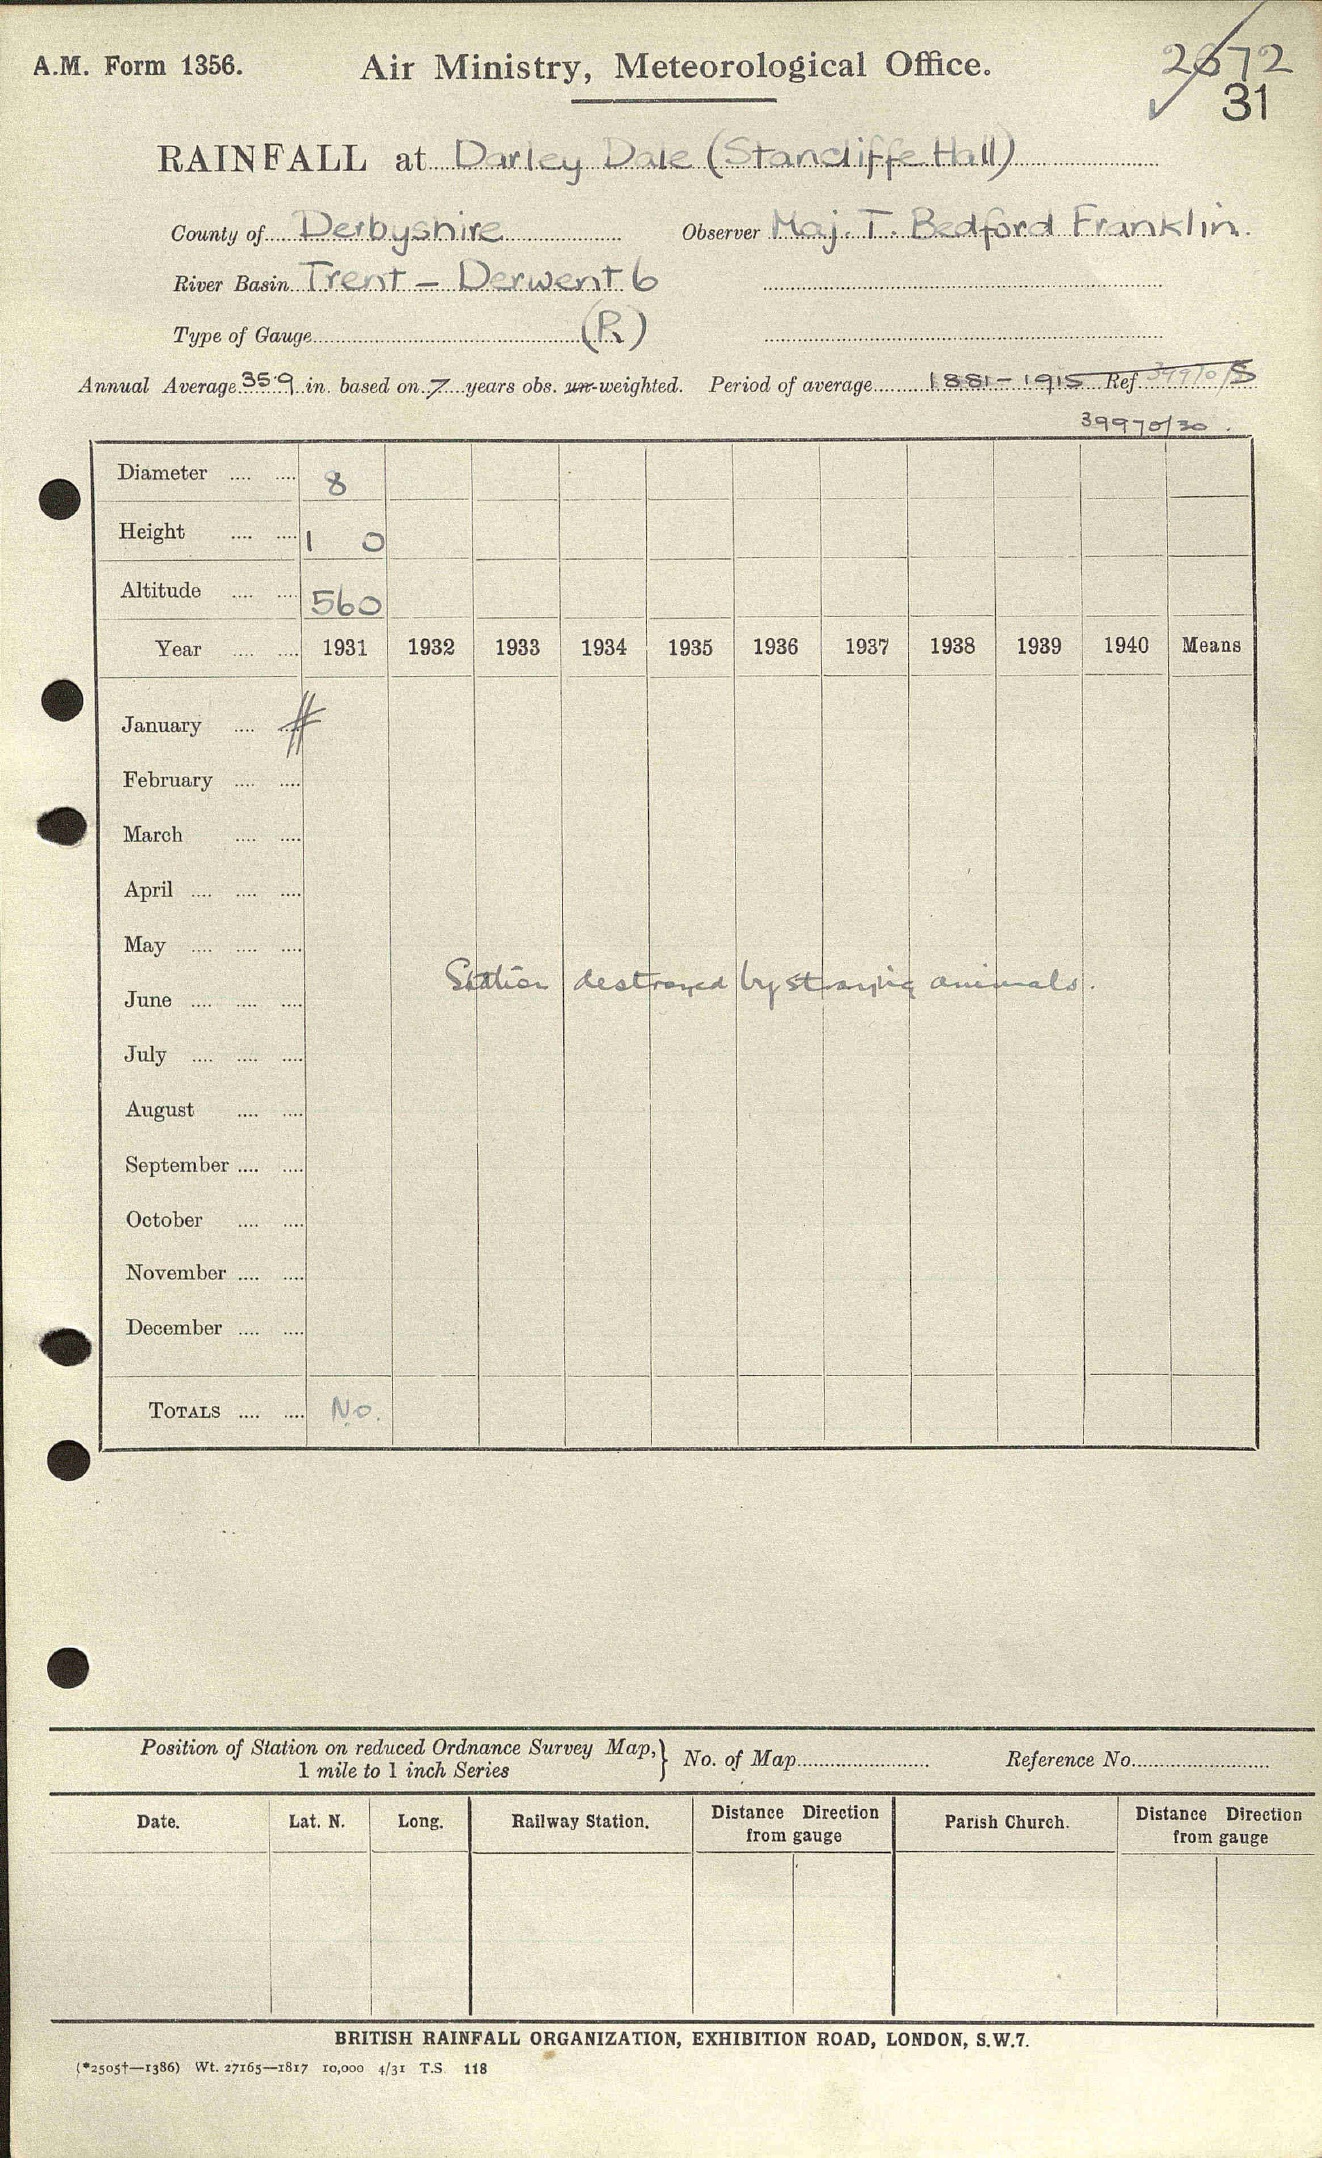 A.M. Form 1356.
Air Ministry, Meteorological Office.
2672
31
RAINFALL at Darley Dale (Stancliffe Hall)
County of Derbyshire Observer Maj. T. Bedford Franklin.
River Basin Trent – Derwent 6
Type of Gauge (R)
Annual Average 35.9 in. based on 7 years obs. un-weighted. Period of average 1881–1915 Ref.
39970/30.
Diameter 8
Height 1 0
Altitude 560
Year 1931 1932 1933 1934 1935 1936 1937 1938 1939 1940 Means
January
February
March
April
May
Station destroyed by straying animals.
June
July
August
September
October
November
December
TOTALS No.
Position of Station on reduced Ordnance Survey Map, 1 mile to 1 inch Series } No. of Map Reference No.
Date. Lat. N. Long. Railway Station. Distance Direction from gauge Parish Church. Distance Direction from gauge
BRITISH RAINFALL ORGANIZATION, EXHIBITION ROAD, LONDON, S.W.7.
(*2505†—1386) Wt. 27165—1817 10,000 4/31 T.S. 118